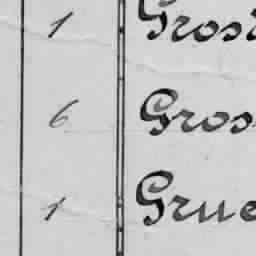 1 Grost
6 Gros
1 Grue